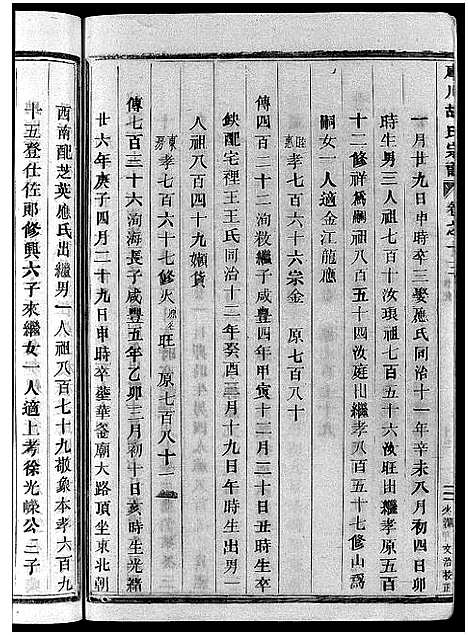 川胡氏宗譜 卷之十二
一月廿九日申時卒三娶應氏同治十一年辛未八月初四日卯
時生男三人祖七百十汝琅祖七百五十六汝旺出繼孝原五百
十二修祥爲嗣祖八百五十四汝庭出繼孝八百五十七修山爲
嗣女一人適金江龍應
孝七百六十六宗金 原七百八十
傳四百二十二洵救繼子咸豐四年甲寅十二月三十日時生卒
缺配宅裡王王氏同治十二年癸酉三月十九日午時生出男一
人祖八百四十九嬾貨
孝七百六十七修火 旺 原七百八十二
傳七百三十六洵海長子咸豐五年乙卯十二月初十日亥時生光緒
廿六年庚子四月二十九日申時卒塟華釜廟大路頂坐東北朝
西南配芝英應氏出繼男一人祖八百七十九敬象本孝六百九
十五登仕佐郎修興六子來繼女一人適上考徐光嶸公三子